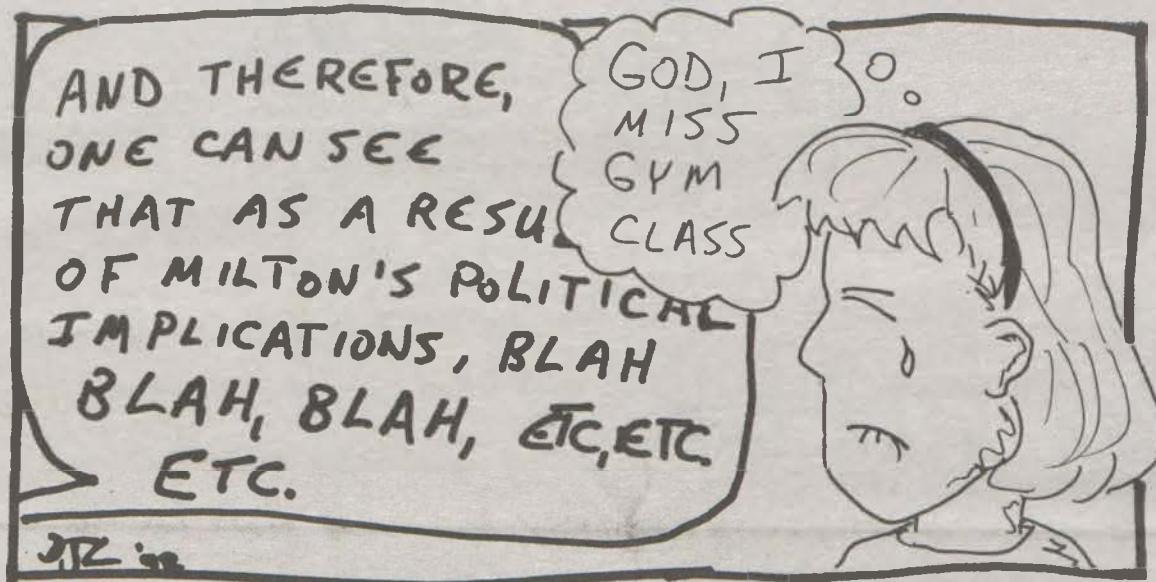 AND THEREFORE,
ONE CAN SEE
THAT AS A RESU
OF MILTON'S POLITICAL
IMPLICATIONS, BLAH
BLAH, BLAH, ETC, ETC.
ETC.
GOD, I
MISS
GYM
CLASS